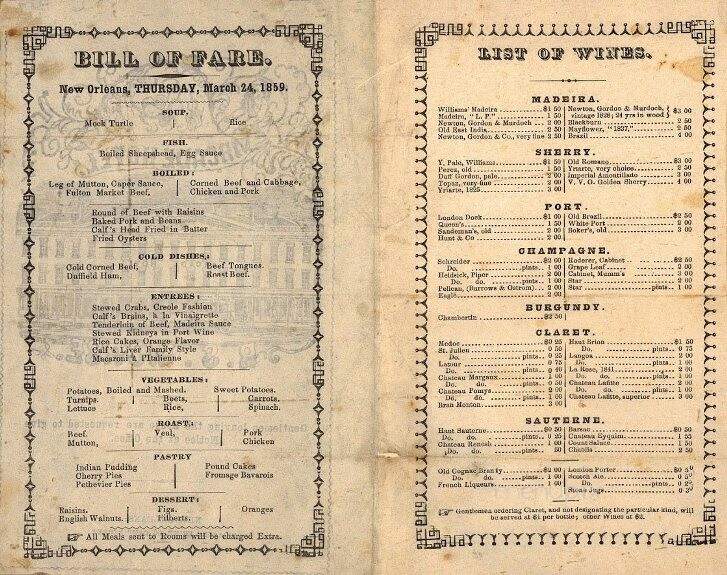 BILL OF FARE.
New Orleans, THURSDAY, March 24, 1859.
SOUP.
Mock Turtle Rice
FISH.
Boiled Sheepshead, Egg Sauce
BOILED:
Leg of Mutton, Caper Sauce, Corned Beef and Cabbage,
Fulton Market Beef, Chicken and Pork
Round of Beef with Raisins
Baked Pork and Beans
Calf's Head Fried in Batter
Fried Oysters
COLD DISHES:
Cold Corned Beef, Beef Tongues.
Duffield Ham, Roast Beef.
ENTREES:
Stewed Crabs, Creole Fashion
Calf's Brains, à la Vinaigrette
Tenderloin of Beef, Madeira Sauce
Stewed Kidneys in Port Wine
Rice Cakes, Orange Flavor
Calf's Liver Family Style
Macaroni à l'Italienne
VEGETABLES:
Potatoes, Boiled and Mashed. Sweet Potatoes.
Turnips. Beets, Carrots.
Lettuce Rice, Spinach.
ROAST:
Beef Veal, Pork
Mutton, Chicken
PASTRY
Indian Pudding Pound Cakes
Cherry Pies Fromage Bavarois
Pethevier Pies
DESSERT:
Raisins. Figs. Oranges
English Walnuts. Filberts.
All Meals sent to Rooms will be charged Extra.
LIST OF WINES.
MADEIRA.
Williams' Madeira $1 50 Newton, Gordon & Murdoch, vintage 1828; 24 yrs in wood } $3 00
Madeira, "L. P." 1 50
Newton, Gordon & Murdoch 2 00 Blackburn 2 50
Old East India 2 50 Mayflower, "1837," 2 50
Newton, Gordon & Co., very fine 2 50 Brazil 4 00
SHERRY.
Y. Pale, Williams $1 50 Old Romano $3 00
Perez, old 1 50 Yriarte, very choice 2 50
Duff Gordon, pale 2 00 Imperial Amontillado 3 00
Topaz, very fine 2 00 V. V. O. Golden Sherry 4 00
Yriarte, 1825 3 00
PORT.
London Dock $1 00 Old Brazil $2 50
Queen's 1 50 White Port 2 00
Sandeman's, old 2 00 Boker's, old 3 00
Hunt & Co 2 00
CHAMPAGNE.
Schreider $2 00 Roderer, Cabinet $2 50
Do. pints 1 00 Grape Leaf 2 00
Heidsick, Piper 2 00 Cabinet, Mumm's 3 00
Do. pints 1 00 Star 2 00
Pelican, (Burrows & Ostrom) 2 00 Star pints 1 00
Eagle 2 00
BURGUNDY.
Chambertin $2 50
CLARET.
Medoc $0 25 Haut Brion $1 50
St. Julien 0 50 Do. pints 0 75
Do. pints 0 25 Langoa 2 00
Latour 0 75 Do. pints 1 00
Do. pints 0 40 La Rose, 1841 2 00
Chateau Margaux 1 00 Do. Do. pints 1 00
Do. do. pints 0 50 Chateau Lafitte 2 00
Chateau 2 00 Do. do. pints 1 00
Do. do. pints 1 00 Chateau Lafitte, superior 3 00
Bran Mouton 2 00
SAUTERNE.
Haut Sauterne $0 50 Barsac $0 50
Do. do. pints 0 25 Chateau Eyquim 1
Chateau 1 50 Chablis 2 50
Do. Do. 50
Old Cognac Brandy $2 00 London Porter $0
Do. Do. pints 1 00 Scotch Ale 0
French Liqueurs 1 00 Do. pints 0
Stone Jugs 0
Gentlemen ordering Claret, and not designating the particular kind, will
be served at $1 per bottle; other Wines at $2.